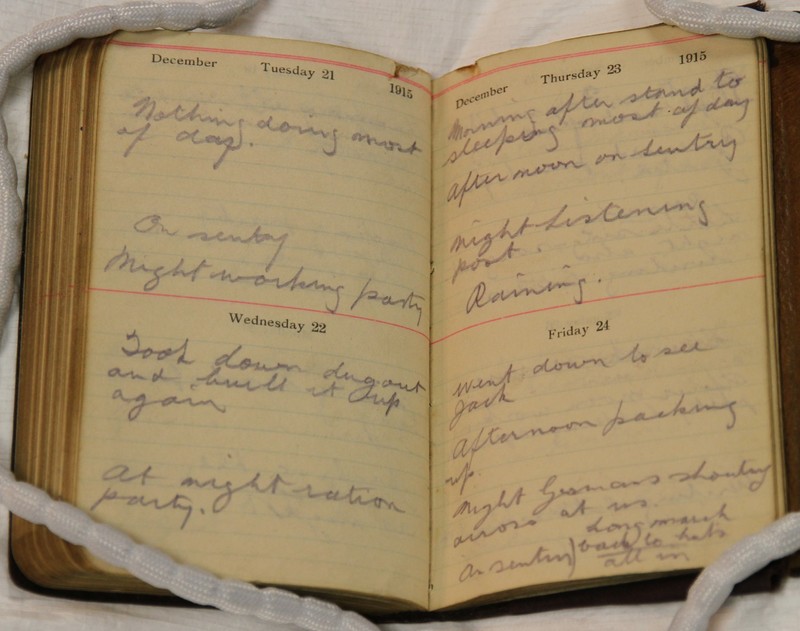 December Tuesday 21 1915
Nothing doing most
of day.
On sentry
Night working party
Wednesday 22
Took down dugout
and built it up
again
At night ration
party.
December Thursday 23 1915
Morning after stand to
sleeping most of day
Afternoon on sentry
Night listening
post.
Raining.
Friday 24
Went down to see
Jack
Afternoon packing
up.
Night Germans shouting
across at us.
Long march
On sentry) back to huts
all in